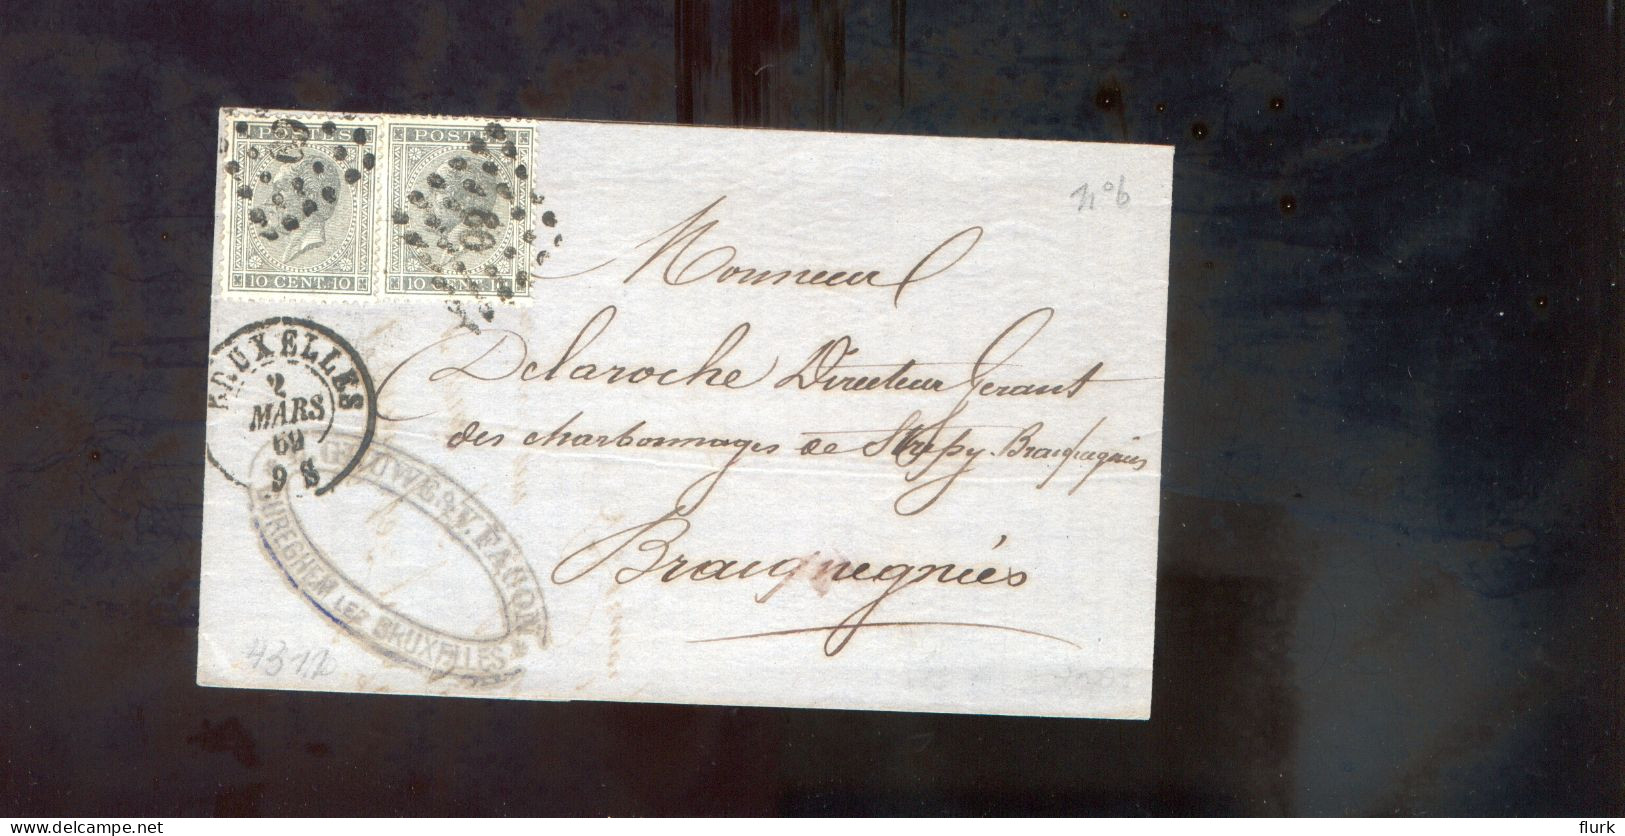 POSTES
10 CENT. 10
POSTES
10 CENT. 10
60
60
N° 6
Monsieur
Delaroche Directeur Gerant
des charbonnages de Strépy-Bracquegnies
Bracquegnies
BRUXELLES
2
MARS
69
9 S
& V. FACON
CUREGHEM LEZ BRUXELLES
4312
delcampe.net
flurk